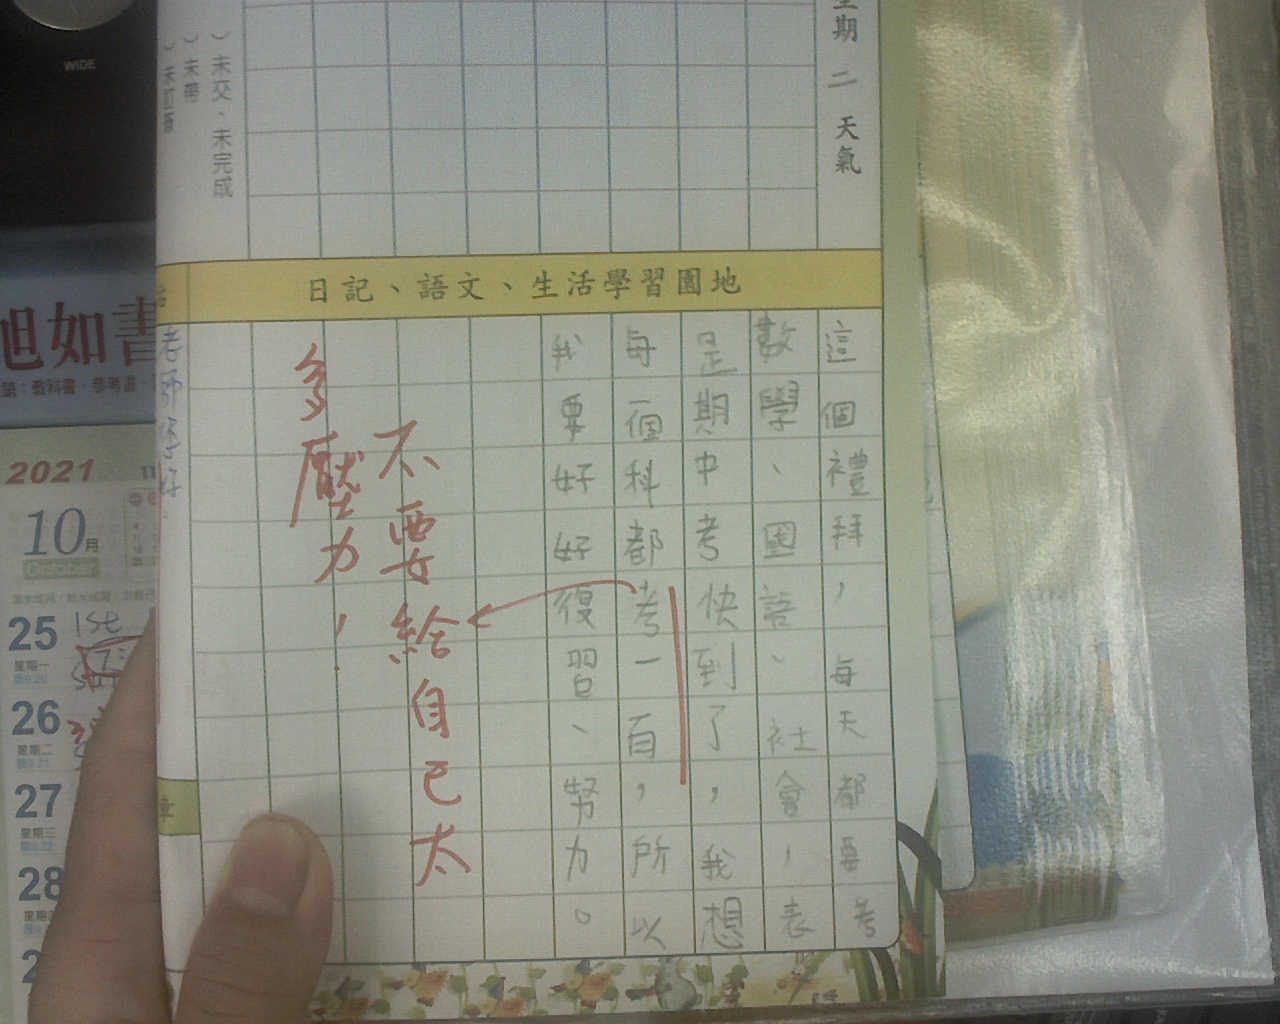 WIDE
期二 天氣
)未交、未完成
)未帶
日記、語文、生活學習園地
這個禮拜,每天都要考
數學、國語、社會,表
是期中考快到了,我想
每個科都考一百,所以
我要好好復習、努力。
不要給自己太
多壓力!
老師您好
旭如書
銷:教科書、參考書、
2021
11
10月
October
25
星期一
26
星期二
27
星期三
28